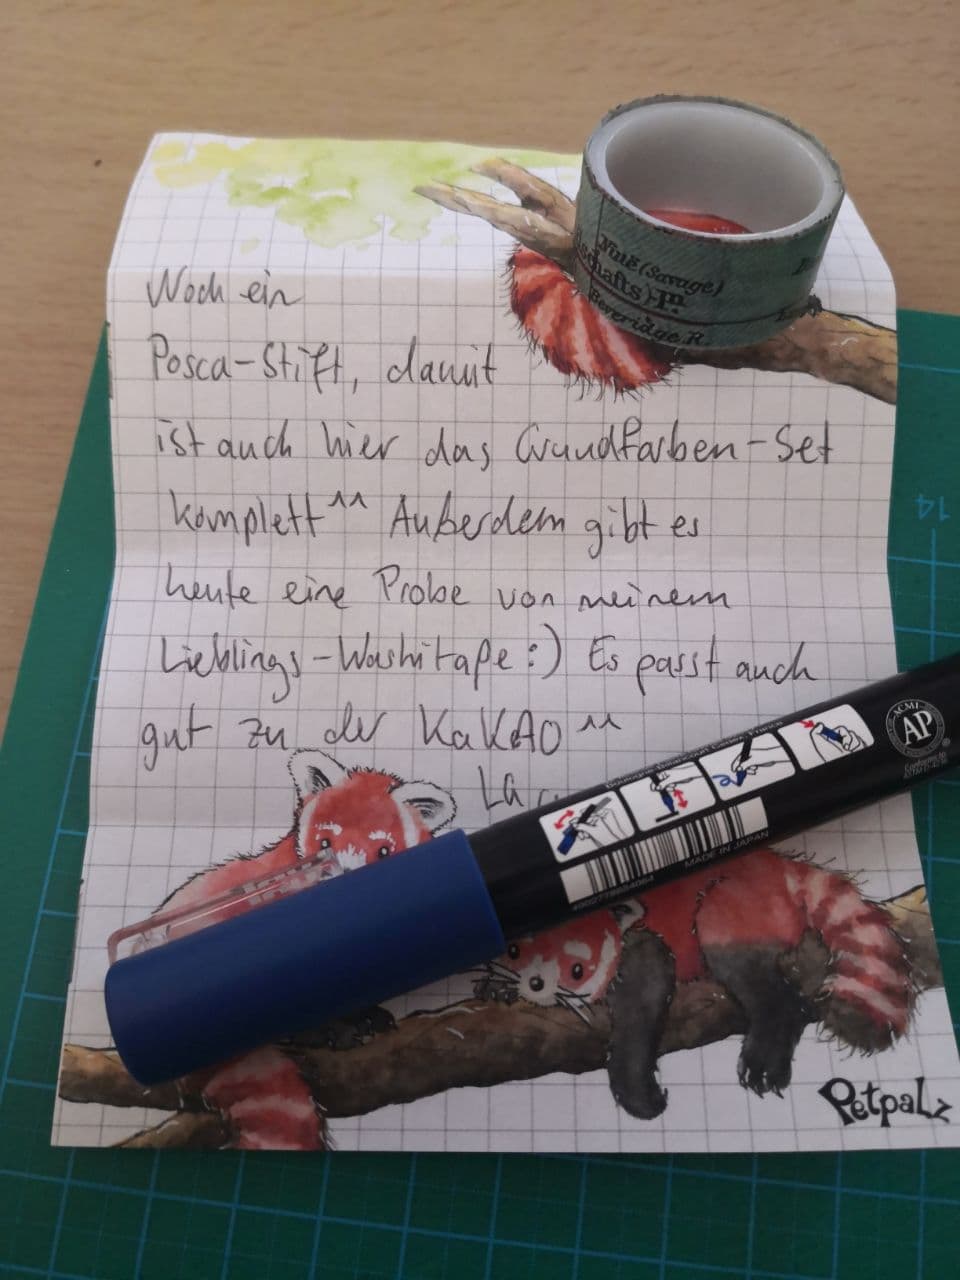 Noch ein
Posca-Stift, damit
ist auch hier das Grundfarben-Set
komplett^^ Außerdem gibt es
heute eine Probe von meinem
Lieblings-Washitape:) Es passt auch
gut zu der KaKAO^^
Niue (Savage)
schafts)-
Beveridge R.
14
ACMI
AP
MADE IN JAPAN
Petpalz